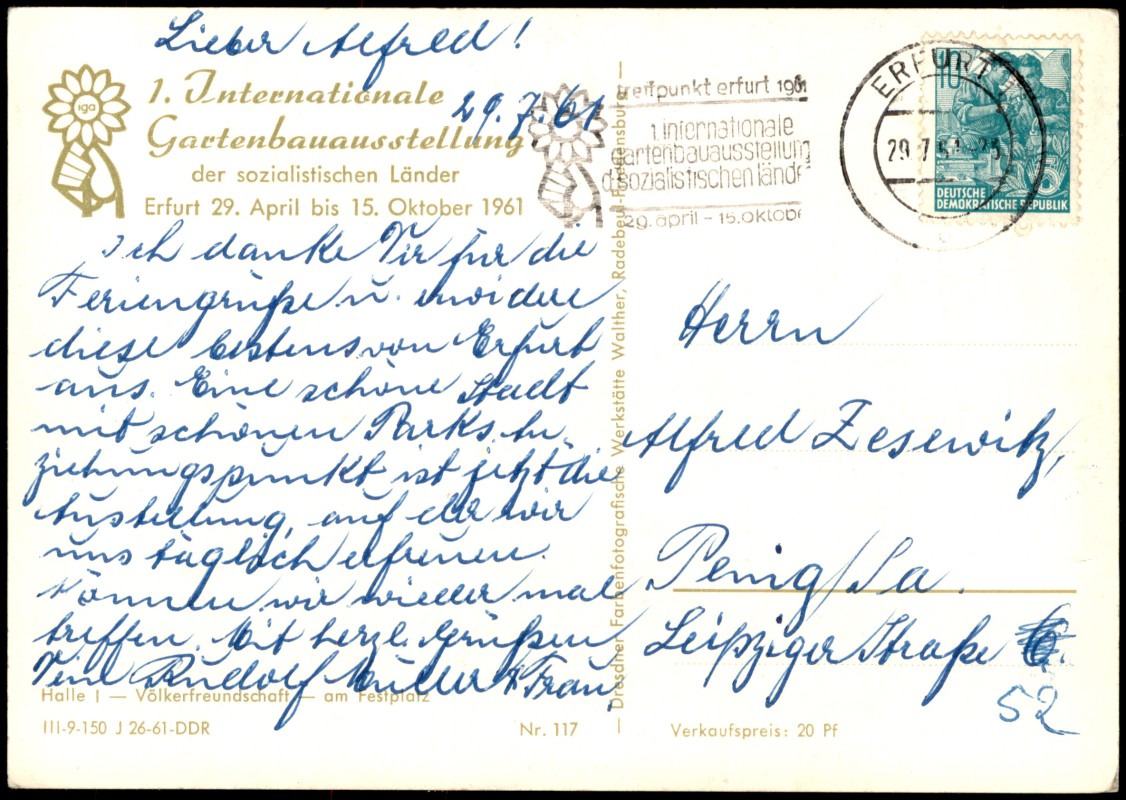 Lieber Alfred!
iga
1. Internationale
Gartenbauausstellung
der sozialistischen Länder
Erfurt 29. April bis 15. Oktober 1961
29.7.61
treffpunkt erfurt 1961
1. internationale
gartenbauausstellung
d. sozialistischen lände
29. april - 15. oktobe
ERFURT
29.7.61
10
5
DEUTSCHE
DEMOKRATISCHE REPUBLIK
Ich danke Dir für die
Feriengrüße u. erwidere
diese bestens von Erfurt
aus. Eine schöne Stadt
mit schönen Parks. An-
ziehungspunkt ist jetzt die
Austellung, auf der wir
uns täglich erfreuen.
Können wir wieder mal
treffen. Mit herzl. Grüßen
Dein Rudolf Müller & Frau
Halle I — Völkerfreundschaft — am Festplatz
III-9-150 J 26-61-DDR
Nr. 117
Dresdner Farbenfotografische Werkstätte Walther, Radebeul-Friedensburg
Herrn
Alfred Zesewitz,
Penig/Sa.
Leipziger Straße
52
Verkaufspreis: 20 Pf